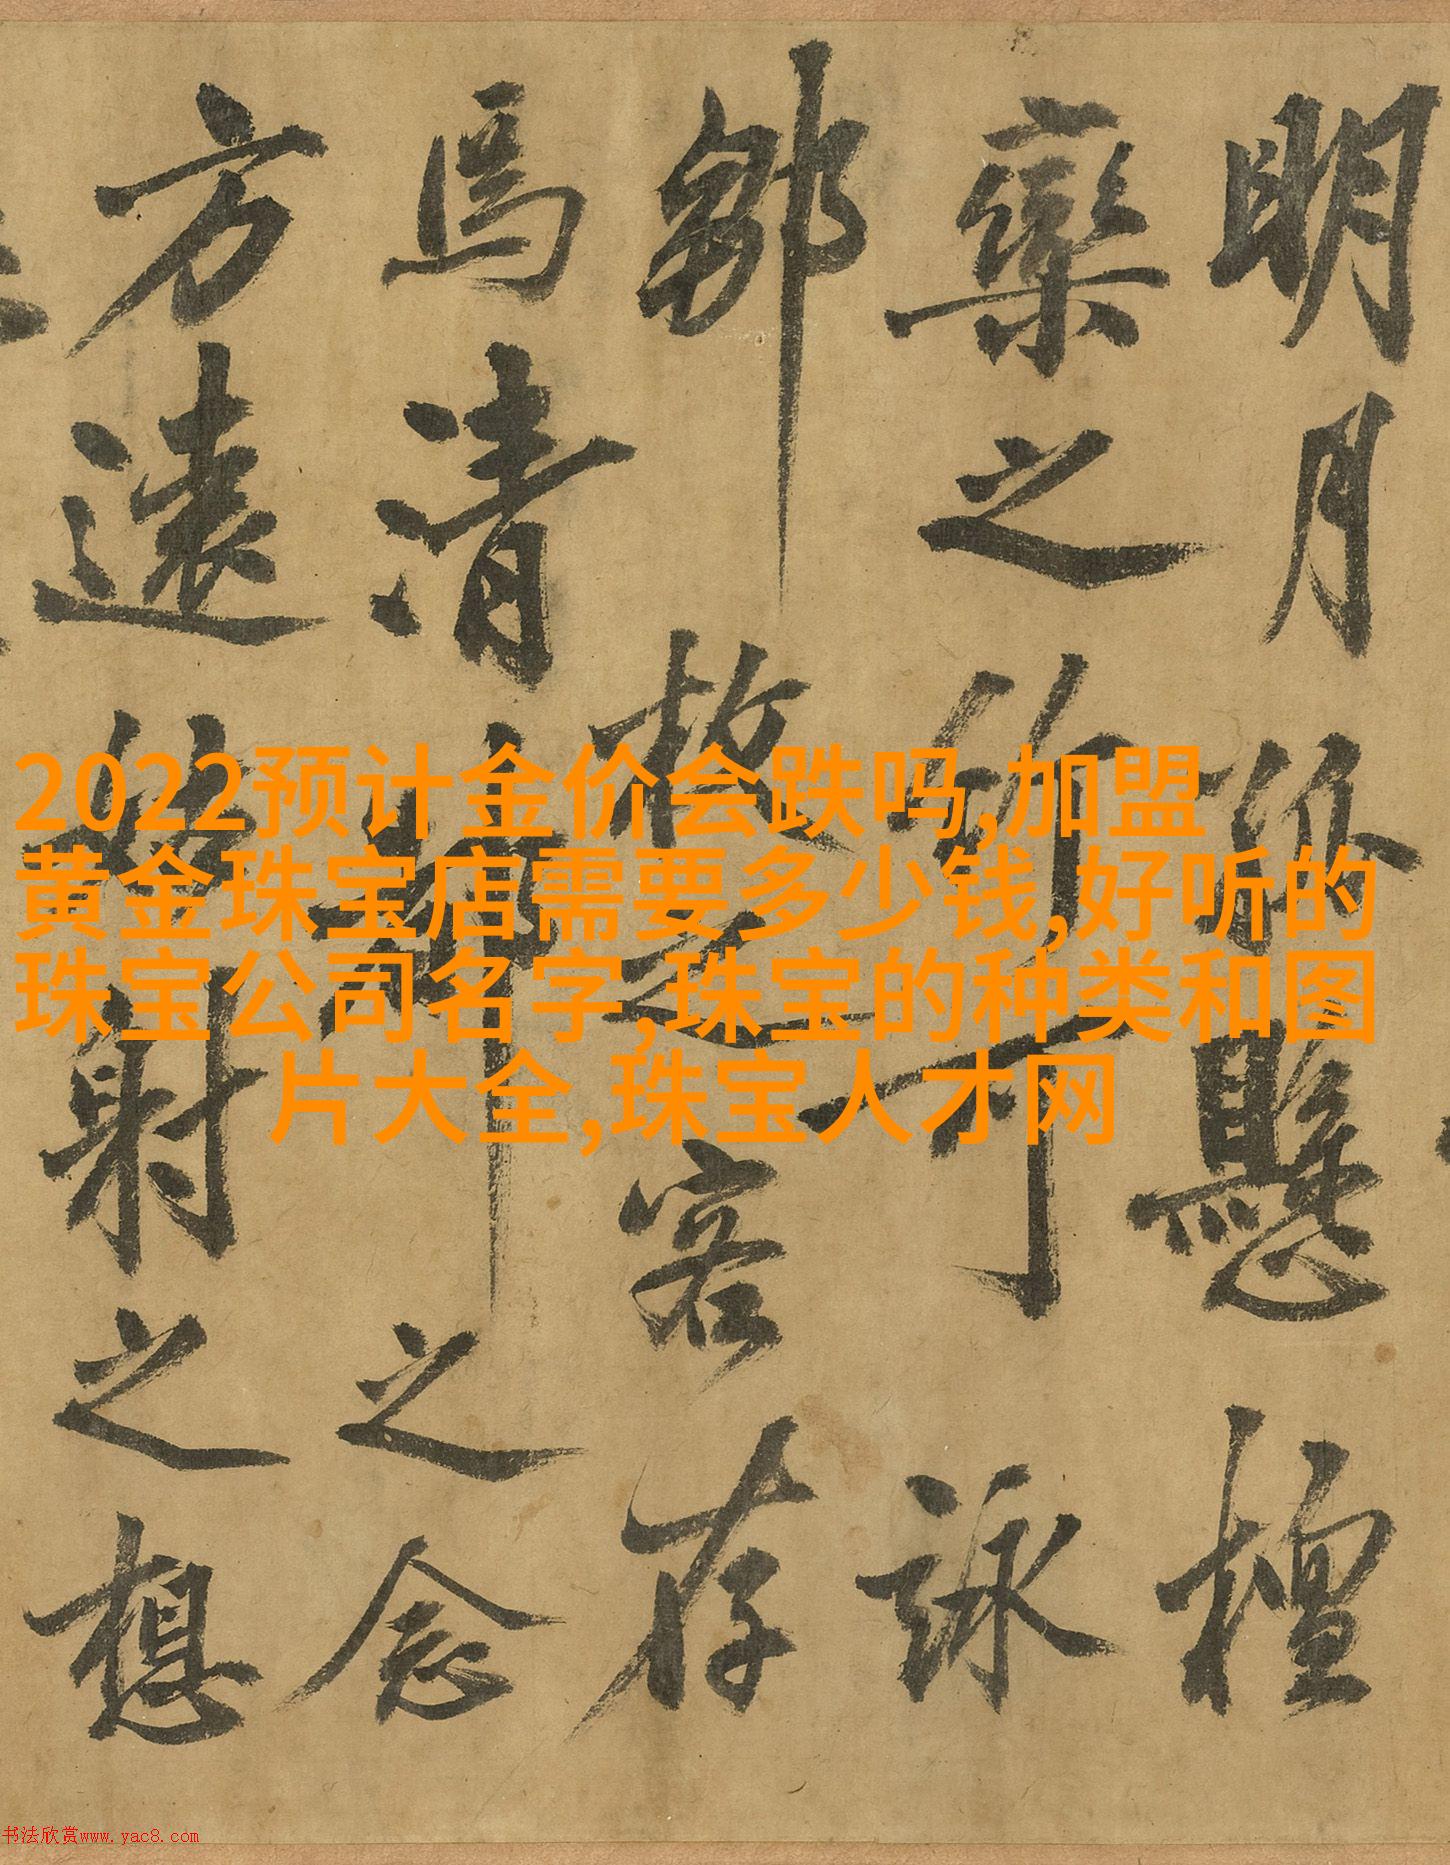 明月懸檀
欒之竹可詠
鄒枚之客存
焉清之念
方遠姑射之想
2022预计金价会跌吗,加盟
黄金珠宝店需要多少钱,好听的
珠宝公司名字,珠宝的种类和图
片大全,珠宝人才网
书法欣赏www.yac8.com